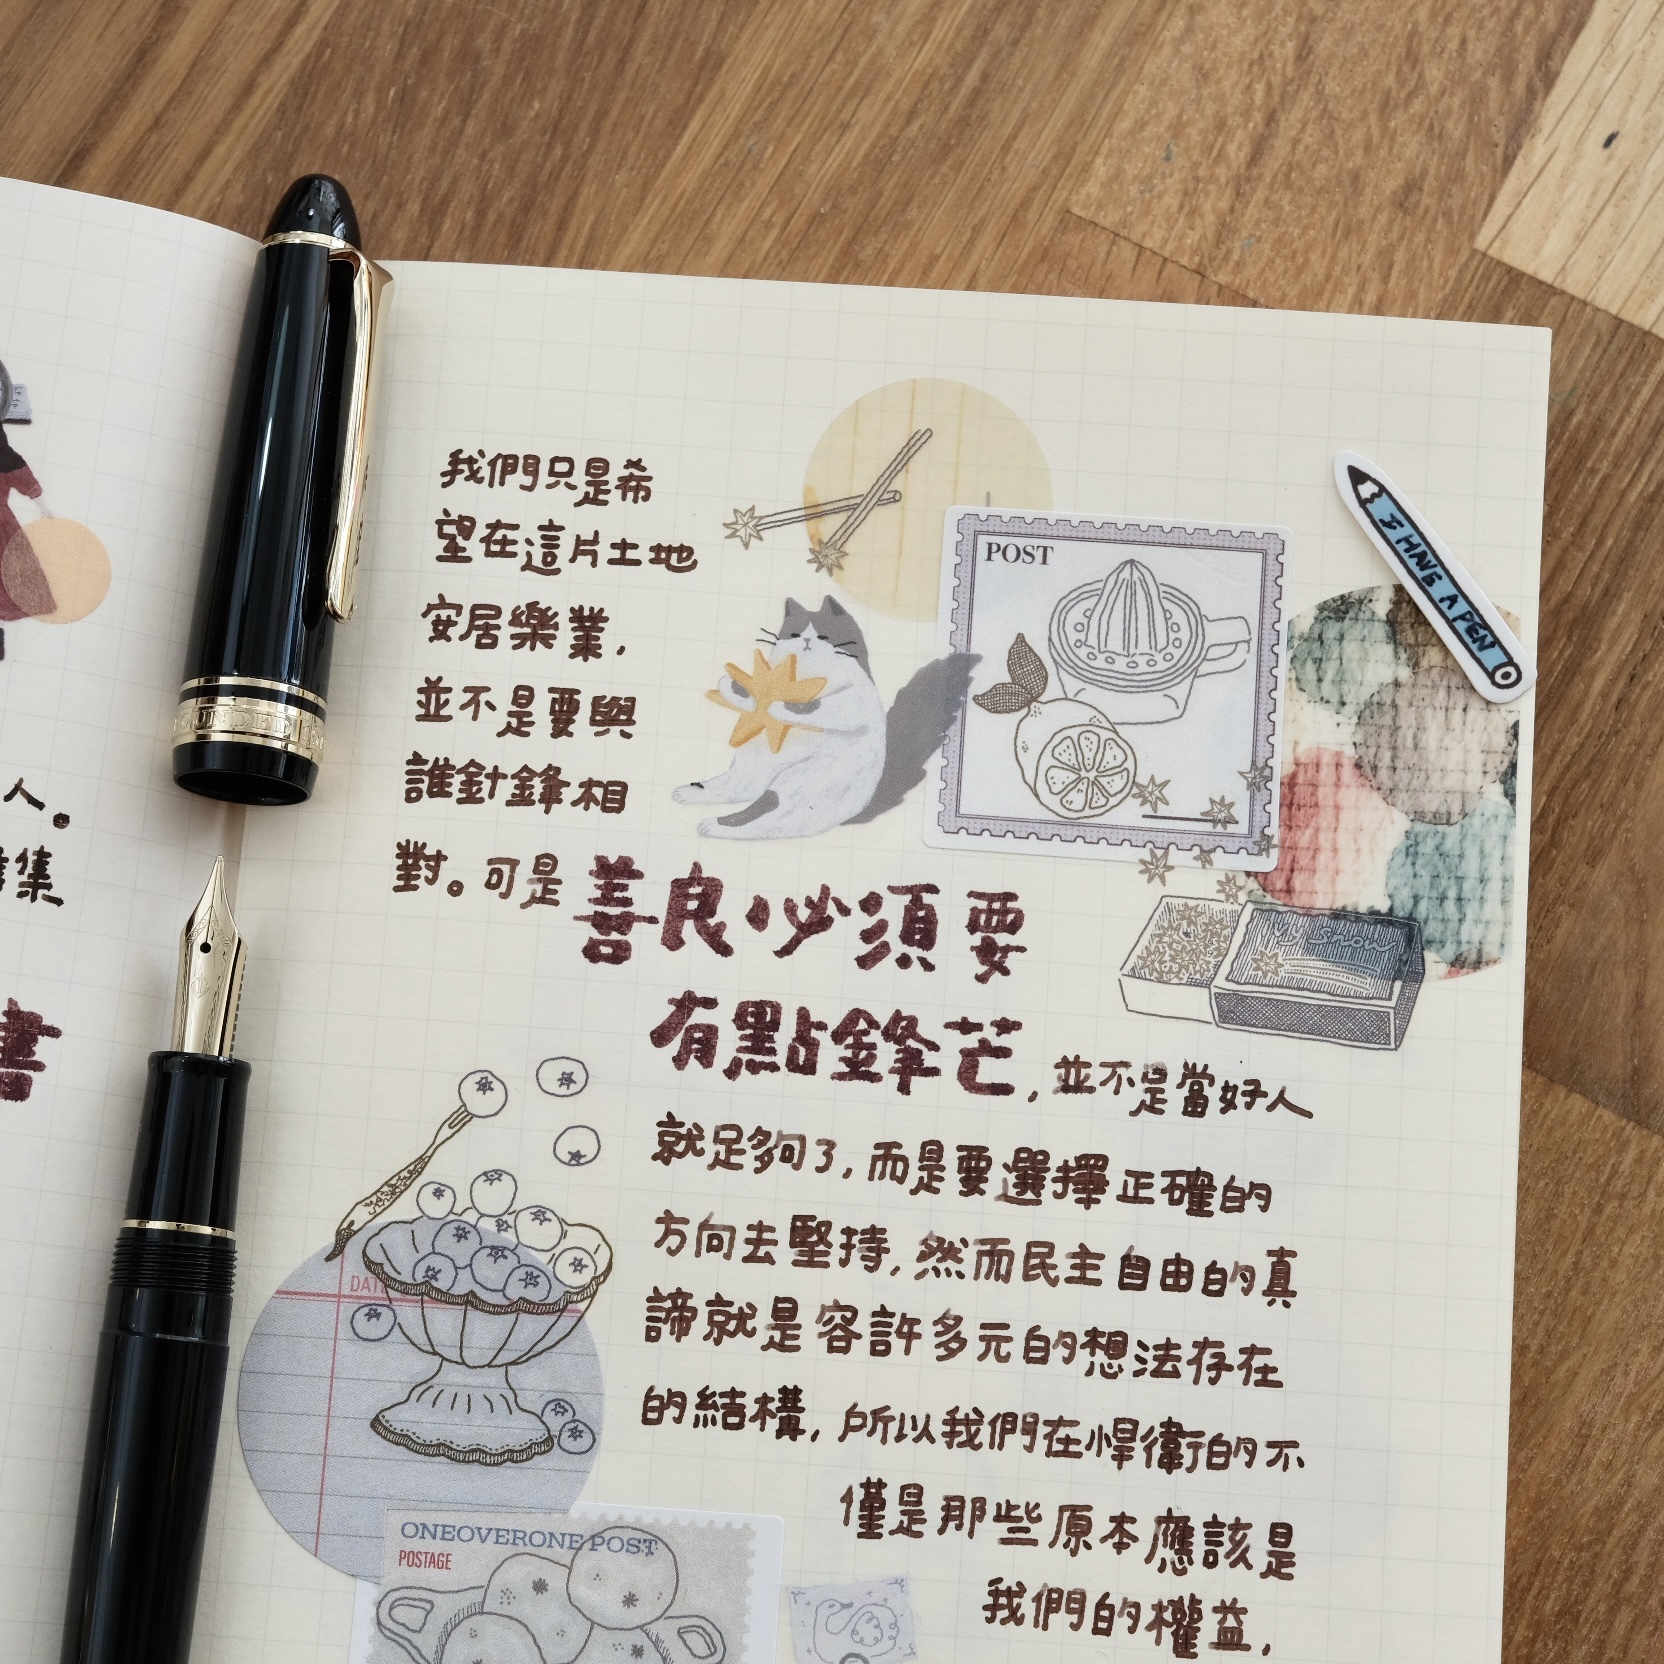 人。
集
書
我們只是希
望在這片土地
安居樂業，
並不是要與
誰針鋒相
對。可是善良必須要
有點鋒芒，並不是當好人
就足夠了，而是要選擇正確的
方向去堅持，然而民主自由的真
諦就是容許多元的想法存在
的結構，所以我們在悍衛的不
僅是那些原本應該是
我們的權益，
POST
I HAVE A PEN
MY SNOW
DAT
ONEOVERONE POST
POSTAGE
OUNDED